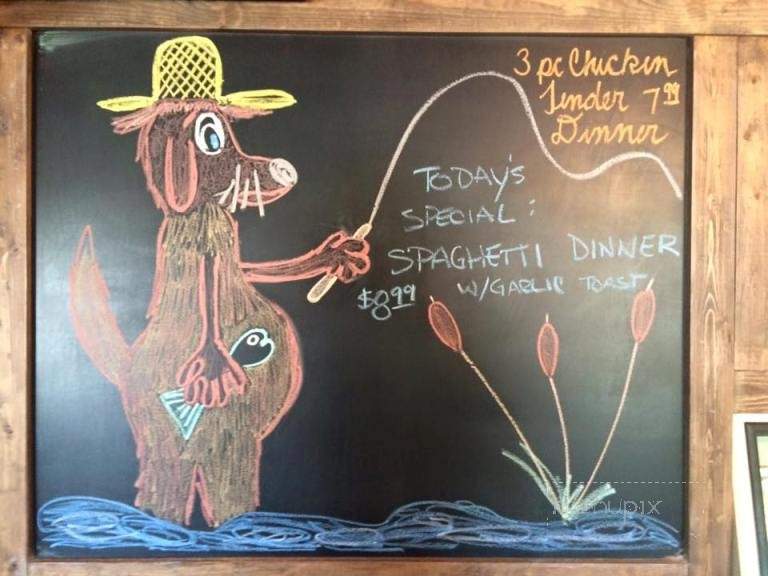 3 pc Chicken
Tender 7.99
Dinner
TODAY'S
SPECIAL:
SPAGHETTI DINNER
W/GARLIC TOAST
$8.99